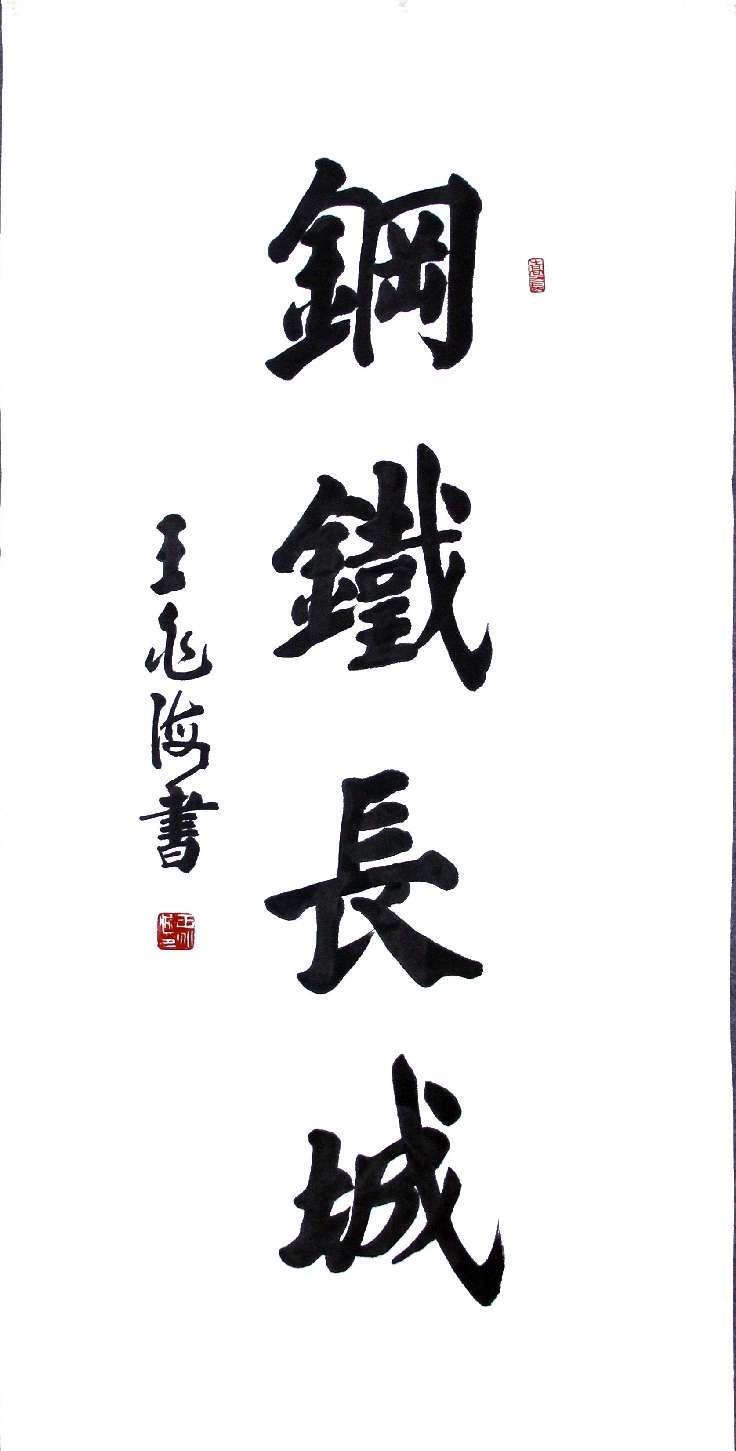 鋼鐵長城
王兆海書